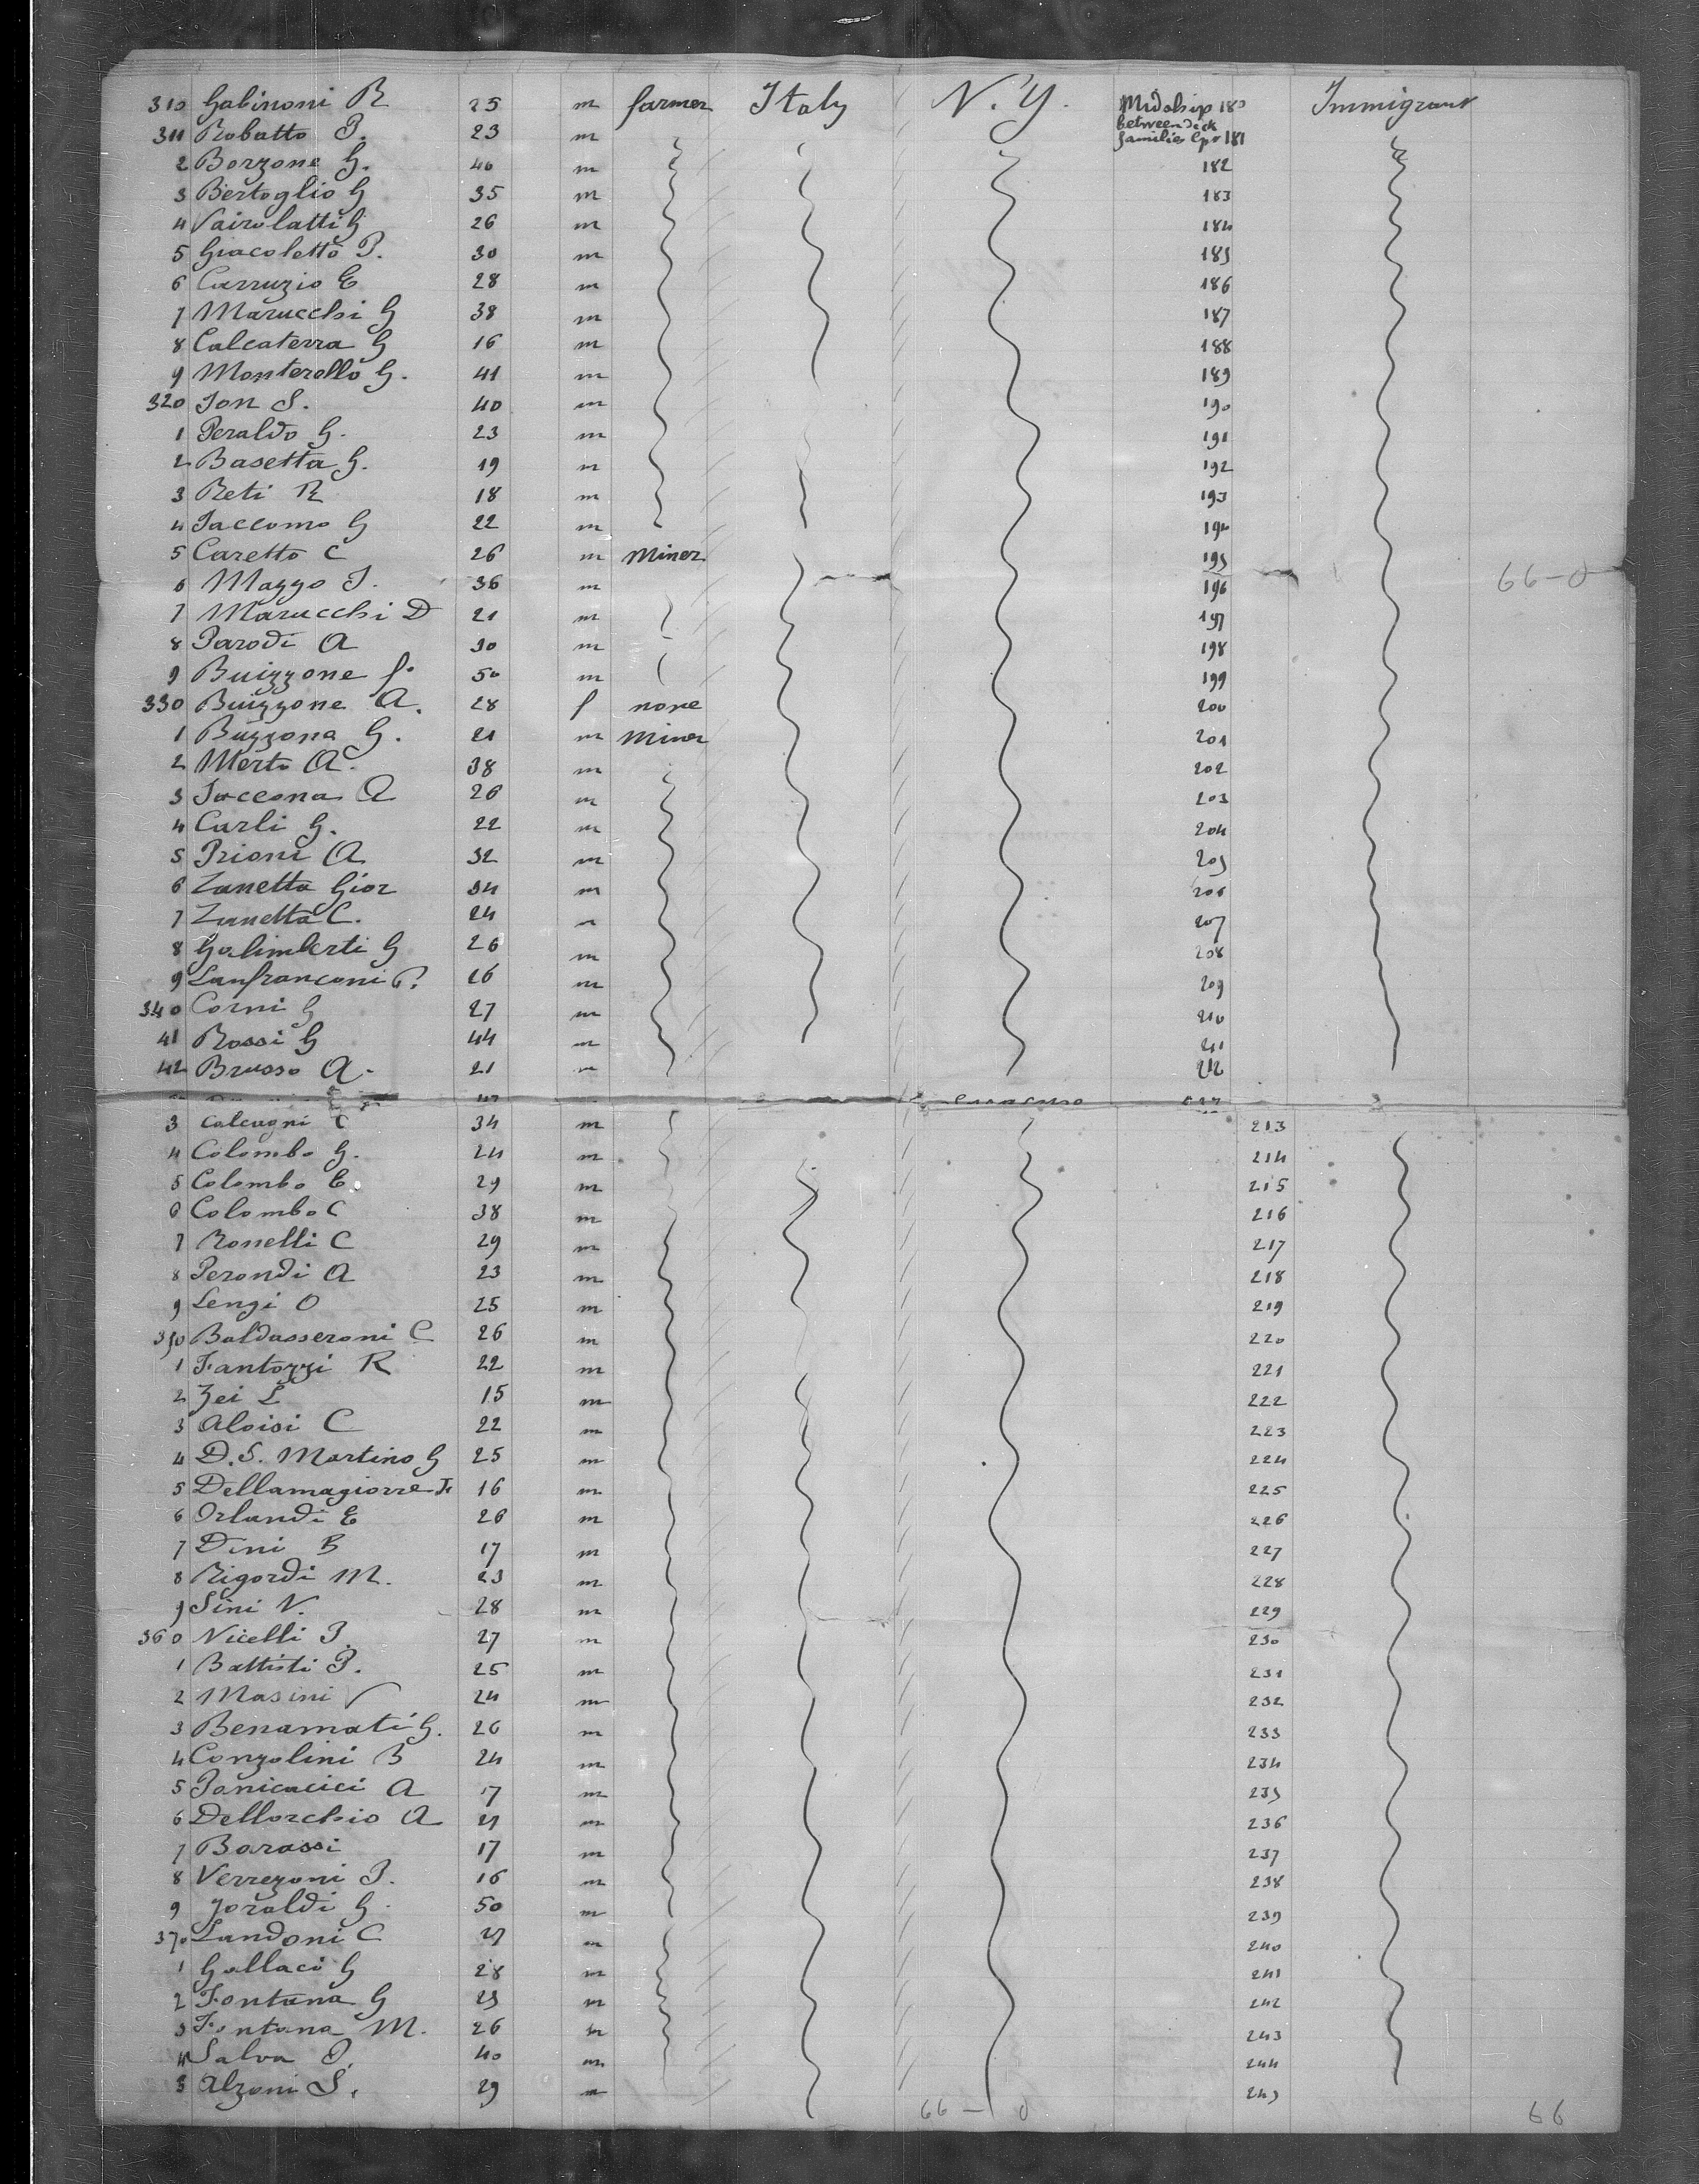 310 Gabinoni R 25 m farmer Italy N.Y. Midship 180 Immigrant
311 Robatto P. 23 m between deck families 181
2 Borzone G. 40 m 182
3 Bertoglio G 35 m 183
4 Vairolatti G 26 m 184
5 Giacoletto P. 30 m 185
6 Carruzio E 28 m 186
7 Marucchi G 38 m 187
8 Calcaterra G 16 m 188
9 Monterollo G. 41 m 189
320 Ion S. 40 m 190
1 Peraldo G. 23 m 191
2 Basetta G. 19 m 192
3 Reti R 18 m 193
4 Iaccomo G 22 m 194
5 Caretto C 26 m miner 195
6 Mazzo I. 36 m 196 66-0
7 Marucchi D 21 m 197
8 Parodi A 30 m 198
9 Buizzone f. 50 m 199
330 Buizzone A. 28 f none 200
1 Buzzona G. 21 m miner 201
2 Merto A. 38 m 202
3 Iaccona A 26 m 203
4 Carli G. 22 m 204
5 Prioni A 32 m 205
6 Zanetta Gior 34 m 206
7 Zanetta C. 24 m 207
8 Galimberti G 26 m 208
9 Lanfranconi P. 26 m 209
340 Corni G 27 m 210
41 Rossi G 44 m 211
42 Brusso A. 21 m 212
3 Calcagni C 34 m 213
4 Colombo G. 24 m 214
5 Colombo E. 29 m 215
6 Colombo C 38 m 216
7 Ronelli C 29 m 217
8 Perondi A 23 m 218
9 Lengi O 25 m 219
350 Baldasseroni C 26 m 220
1 Fantozzi R 22 m 221
2 Zei L 15 m 222
3 Aloisi C 22 m 223
4 D.S. Martino G 25 m 224
5 Dellamagiorre F. 16 m 225
6 Orlandi E 26 m 226
7 Dini B 17 m 227
8 Rigordi M. 23 m 228
9 Sini N. 28 m 229
360 Nicelli P. 27 m 230
1 Battisti P. 25 m 231
2 Masini V 24 m 232
3 Benamati G. 26 m 233
4 Conzolini B 24 m 234
5 Panicucici A 17 m 235
6 Dellorchio A 27 m 236
7 Barassi 17 m 237
8 Verrezoni P. 16 m 238
9 Joraldi G. 50 m 239
370 Landoni C 27 m 240
1 Gallaci G 28 m 241
2 Fontana G 23 m 242
3 Fontana M. 26 m 243
4 Salva P. 40 m 244
5 Alzoni S. 29 m 245
66-0 66